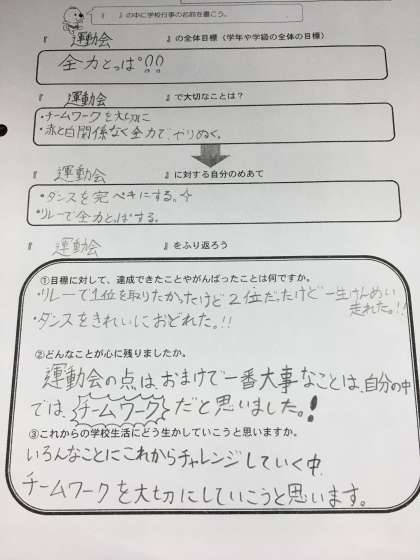 『　　』の中に学校行事の名前を書こう。
『 運動会 』の全体目標（学年や学級の全体の目標）
全力とっぱ!!
『 運動会 』で大切なことは？
・チームワークを大切に
・赤と白関係なく全力で、やりぬく。
『 運動会 』に対する自分のめあて
・ダンスを完ペキにする。
・リレーで全力とっぱする。
『 運動会 』をふり返ろう
①目標に対して、達成できたことやがんばったことは何ですか。
・リレーで1位を取りたかったけど2位だったけど一生けんめい
走れた。!!
・ダンスをきれいにおどれた。!!
②どんなことが心に残りましたか。
運動会の点は、おまけで一番大事なことは、自分の中
では、チームワークだと思いました。!
③これからの学校生活にどう生かしていこうと思いますか。
いろんなことにこれからチャレンジしていく中、
チームワークを大切にしていこうと思います。